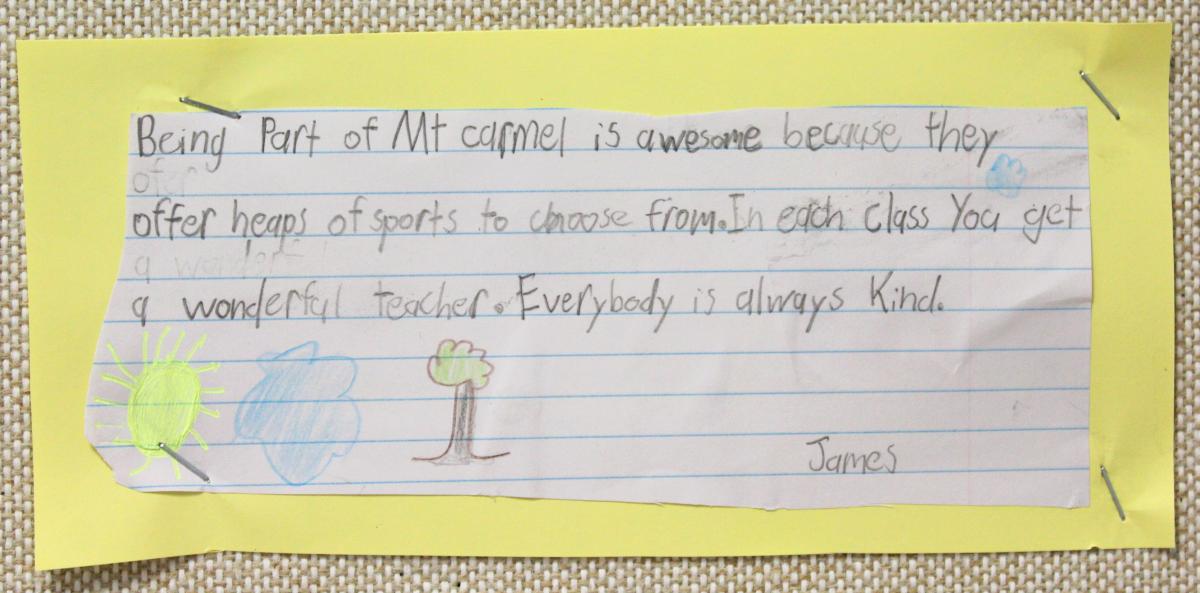 Being Part of Mt carmel is awesome because they
ofer
offer heaps of sports to choose from. In each class You get
a wonder
a wonderful teacher. Everybody is always Kind.
James